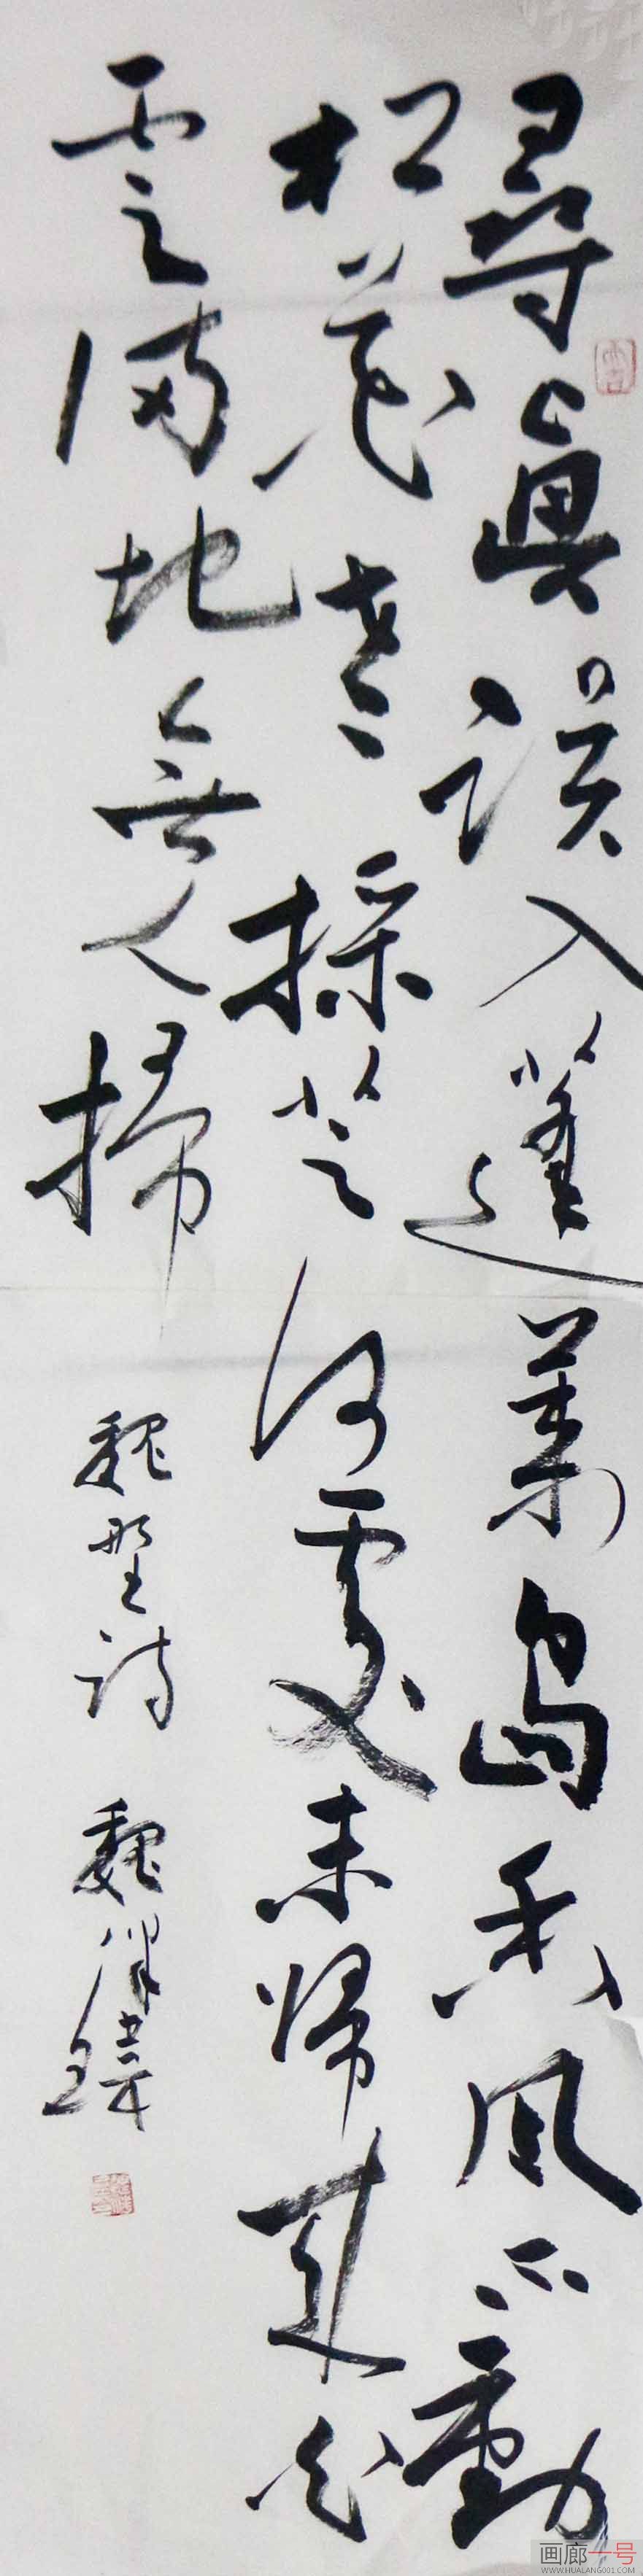 尋真误入蓬莱岛香风不動
松花老採芝何處未歸来白
雲满地無人掃
魏野诗 魏
画廊一号
WWW.HUALANG001.COM